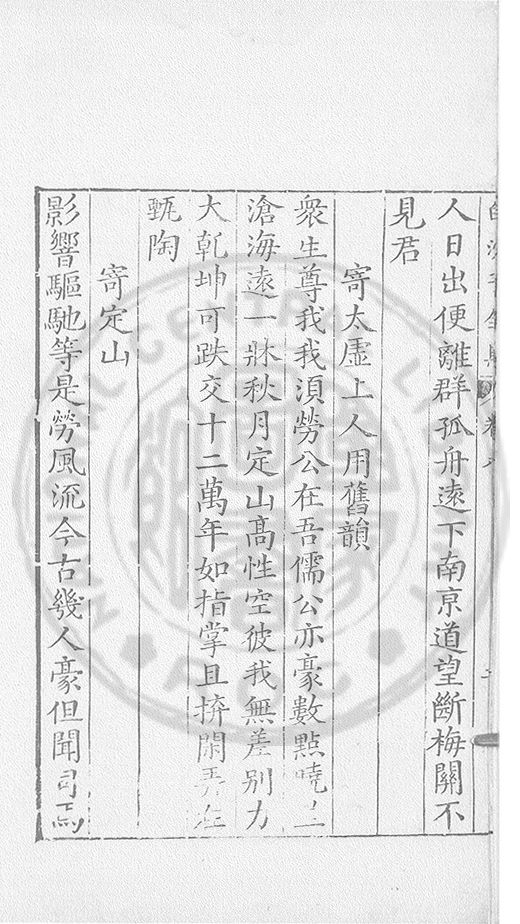 人日出便離群孤舟遠下南京道望斷梅關不
見君
寄太虛上人用舊韻
衆生尊我我湏勞公在吾儒公亦豪數點曉
滄海遠一牀秋月定山高性空彼我無差別力
大乹坤可跌交十二萬年如指掌且拚閑弄在
甄陶
寄定山
影響驅馳等是勞風流今古幾人豪但聞司馬